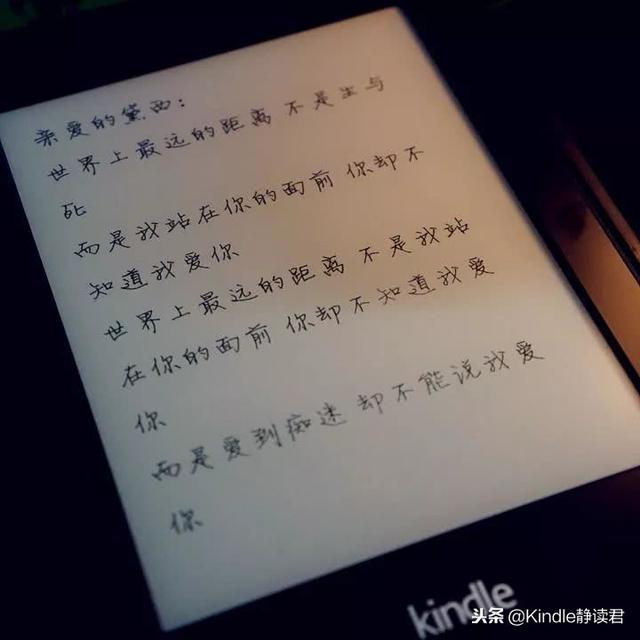 亲爱的黛西：
世界上最远的距离 不是生与
死
而是我站在你的面前 你却不
知道我爱你
世界上最远的距离 不是我站
在你的面前 你却不知道我爱
你
而是爱到痴迷 却不能说我爱
你
kindle
头条 @Kindle静读君